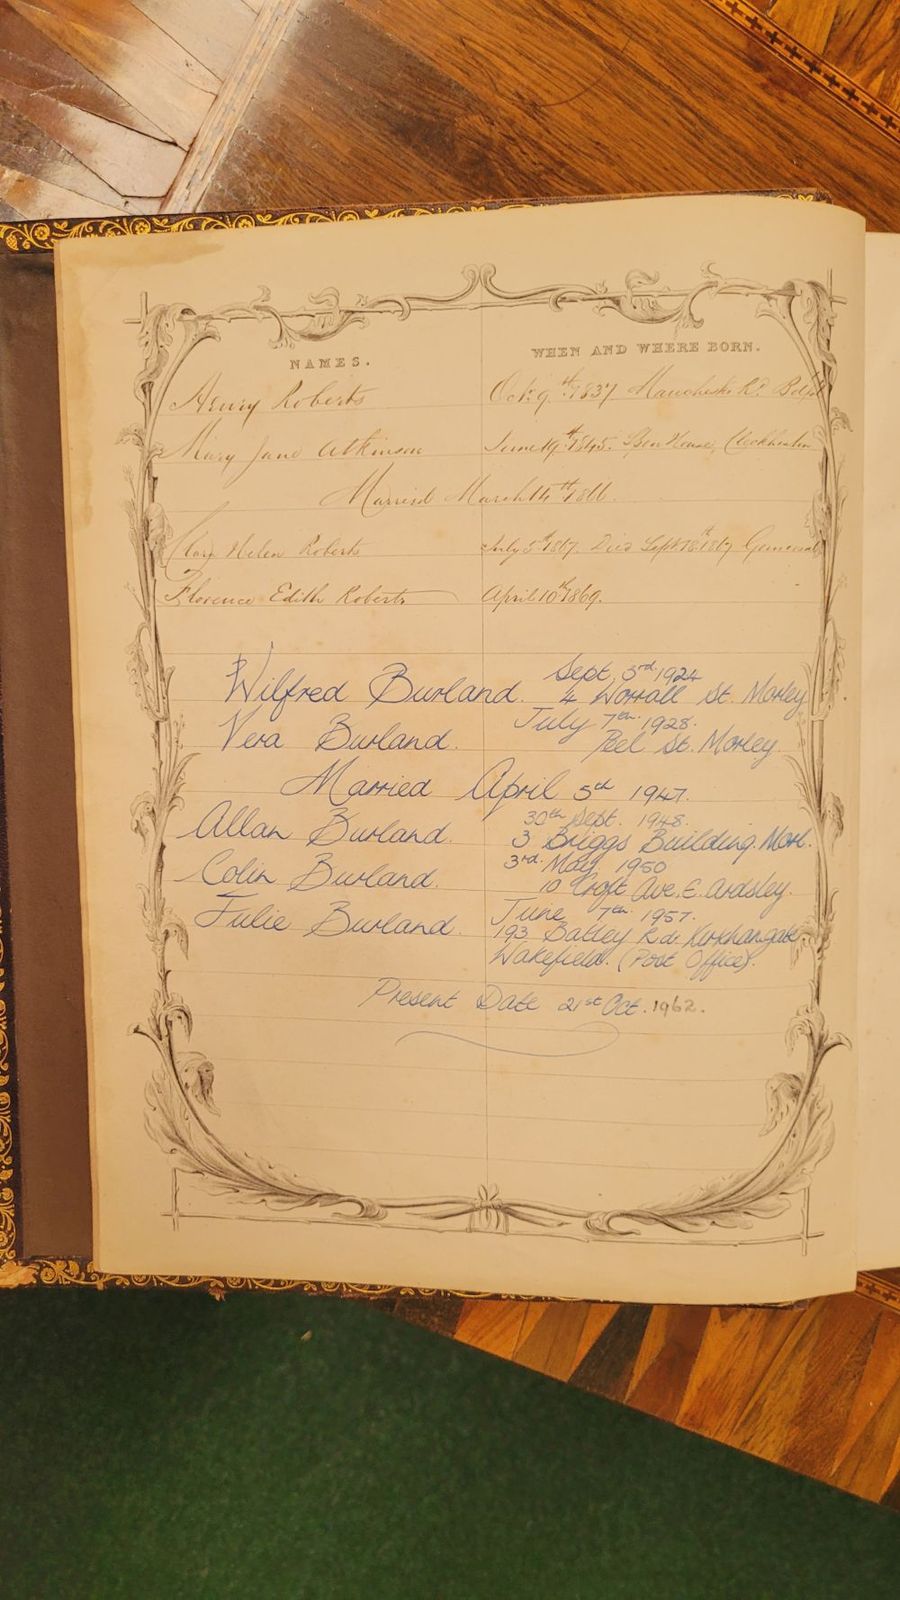 NAMES. WHEN AND WHERE BORN.
Henry Roberts Oct. 9th 1837 Manchester Rd.
Mary Jane Atkinson June 19th 1845. House, Cleckheaton
Married March 14th 1866.
Clara Helen Roberts July 5th 1867. Died Sept 18th 1867
Florence Edith Roberts April 10th 1869.
Sept. 3rd. 1924
Wilfred Burland. 4 Worrall St. Morley
July 7th. 1928.
Vera Burland. Peel St. Morley.
Married April 5th 1947.
30th Sept. 1948.
Allan Burland. 3 Briggs Building. Morl.
3rd. May 1950
Colin Burland. 10 Croft Ave. E. Ardsley.
June 7th. 1957.
Julie Burland. 193 Batley Rd. Kirkhamgate
Wakefield. (Post Office).
Present Date 21st Oct. 1962.